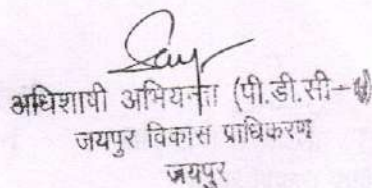 अधिशाषी अभियन्ता (पी.डी.सी-
जयपुर विकास प्राधिकरण
जयपुर